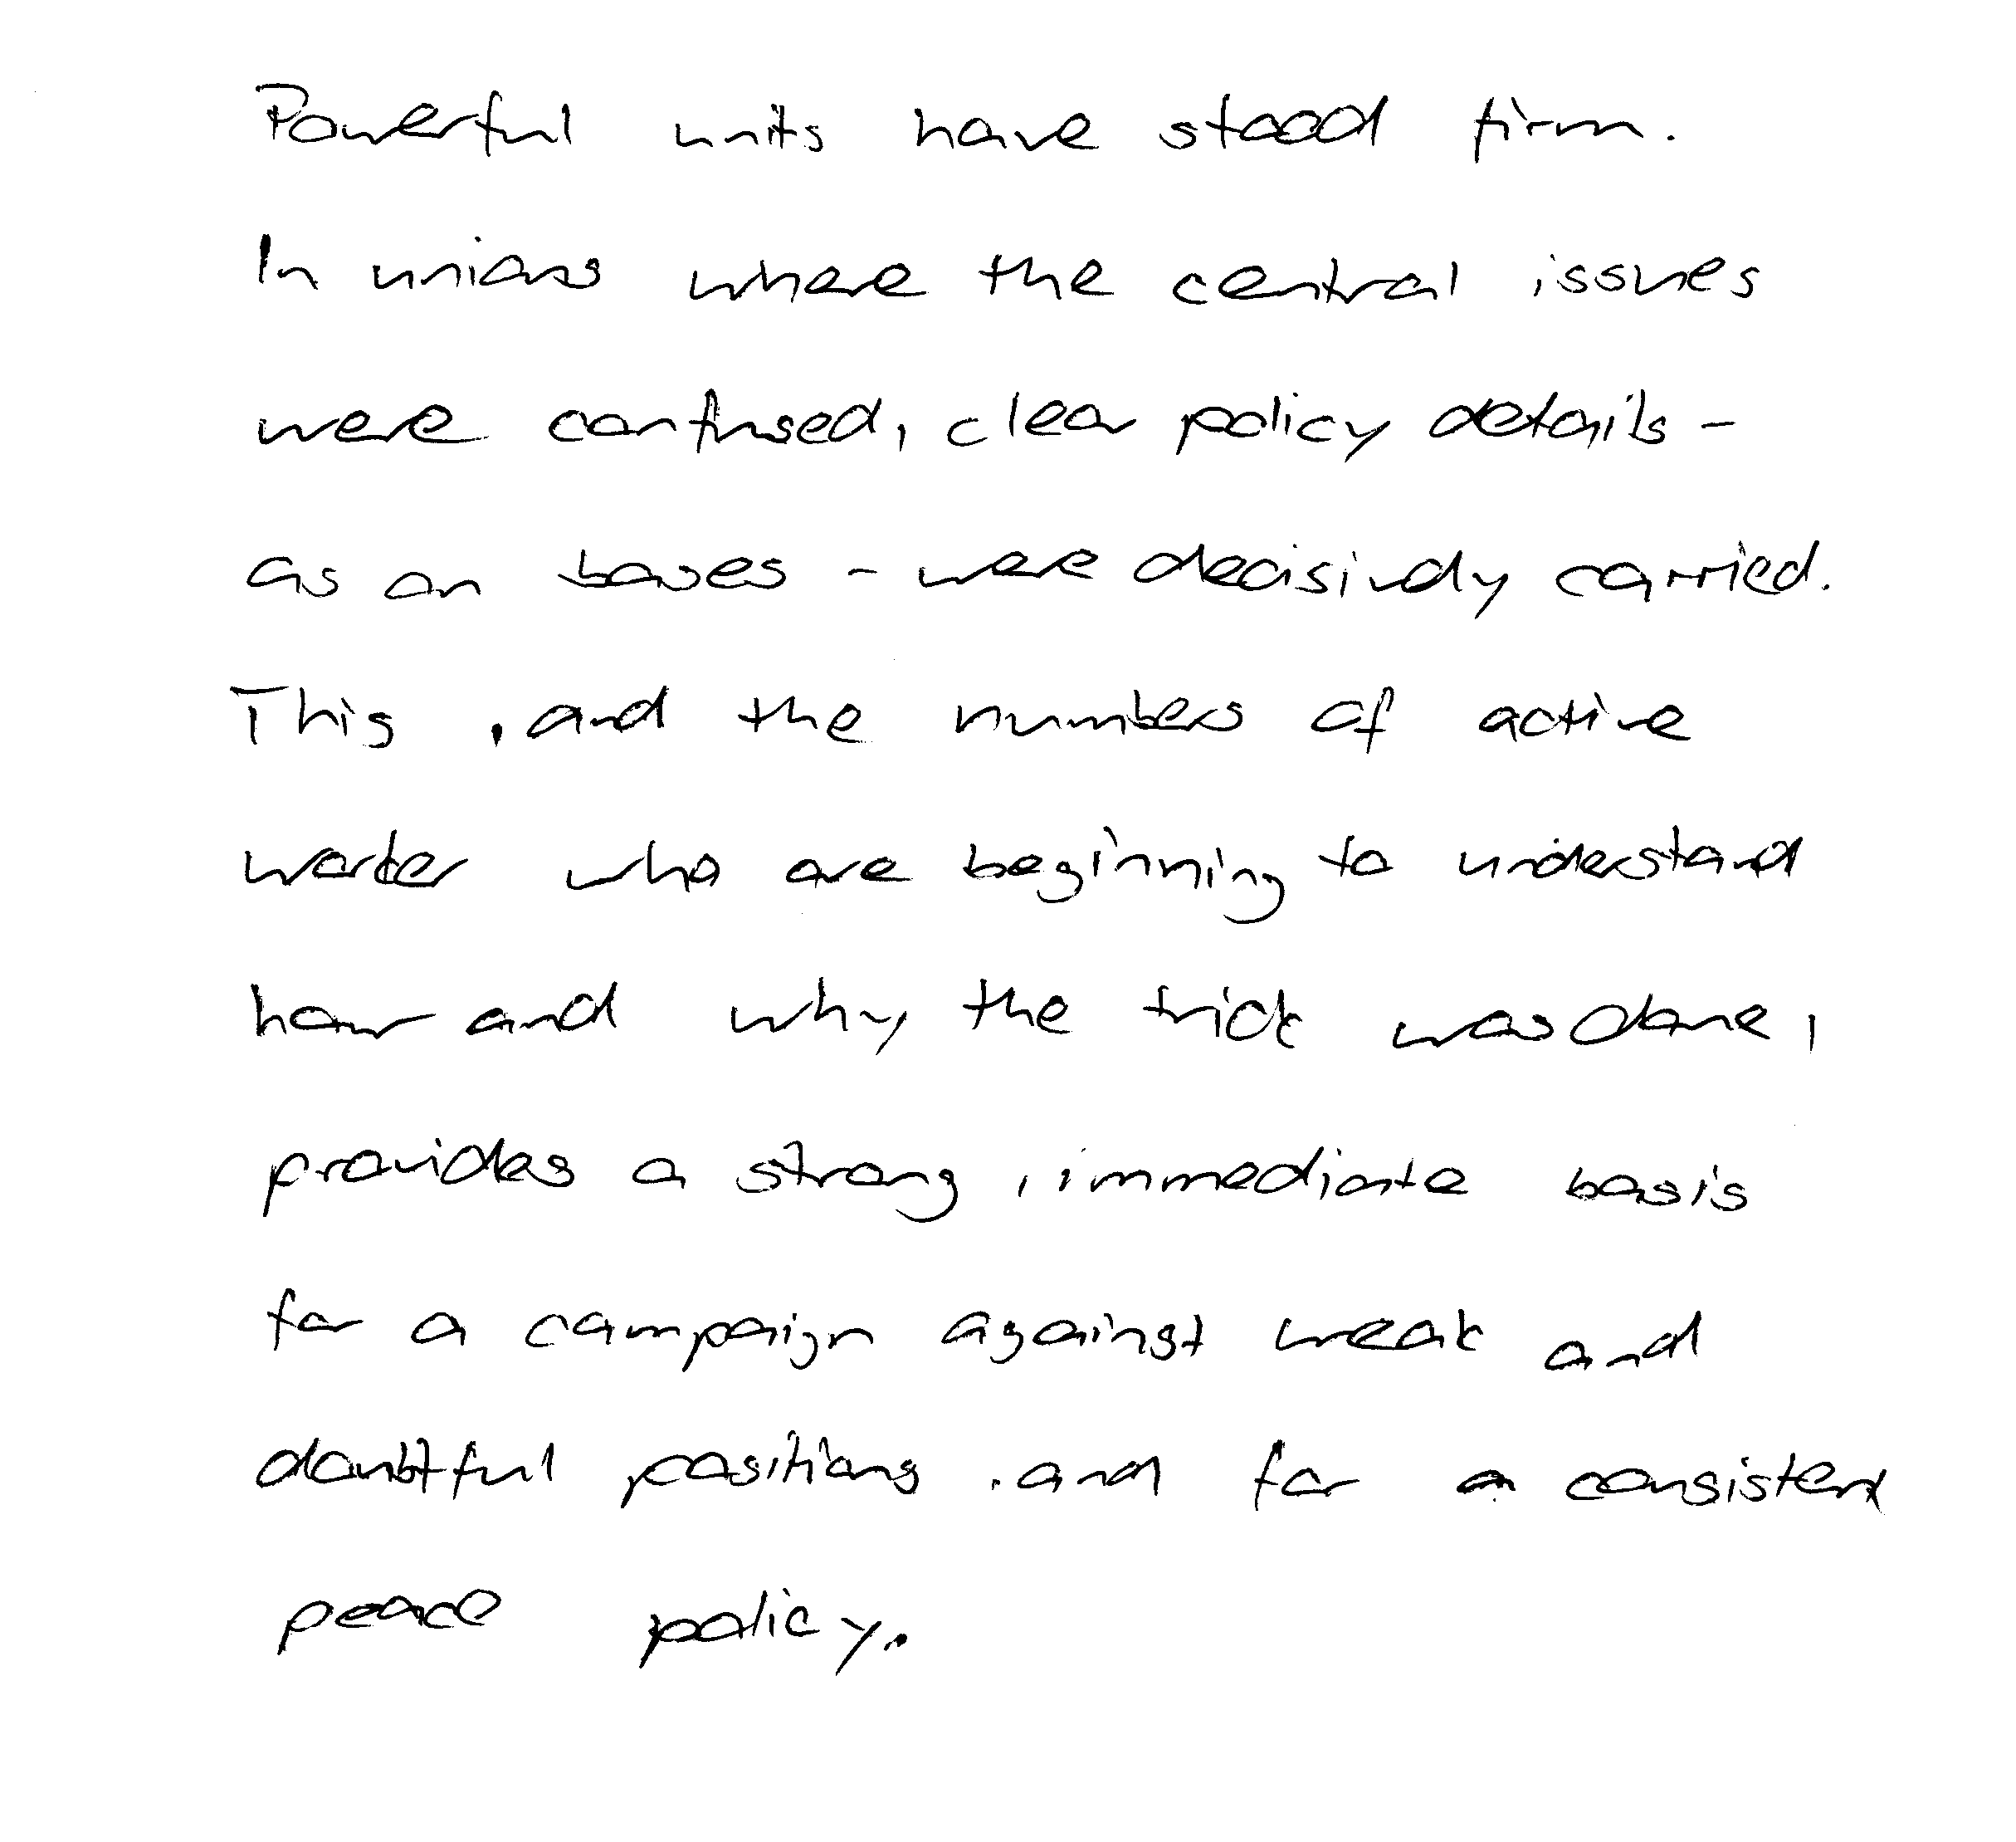 Powerful units have stood firm.
In unions where the central issues
were confused, clear policy details -
as on bases - were decisively carried.
This , and the numbers of active
worker who are beginning to understand
how and why the trick was done ,
provides a strong , immediate basis
for a campaign against weak and
doubtful positions , and for a consistent
peace policy.